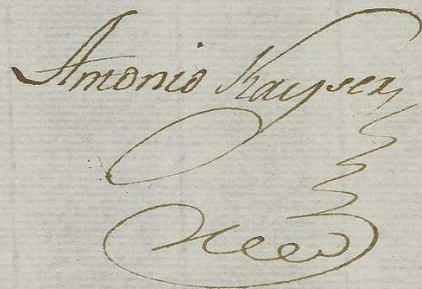 Antonio Kayser